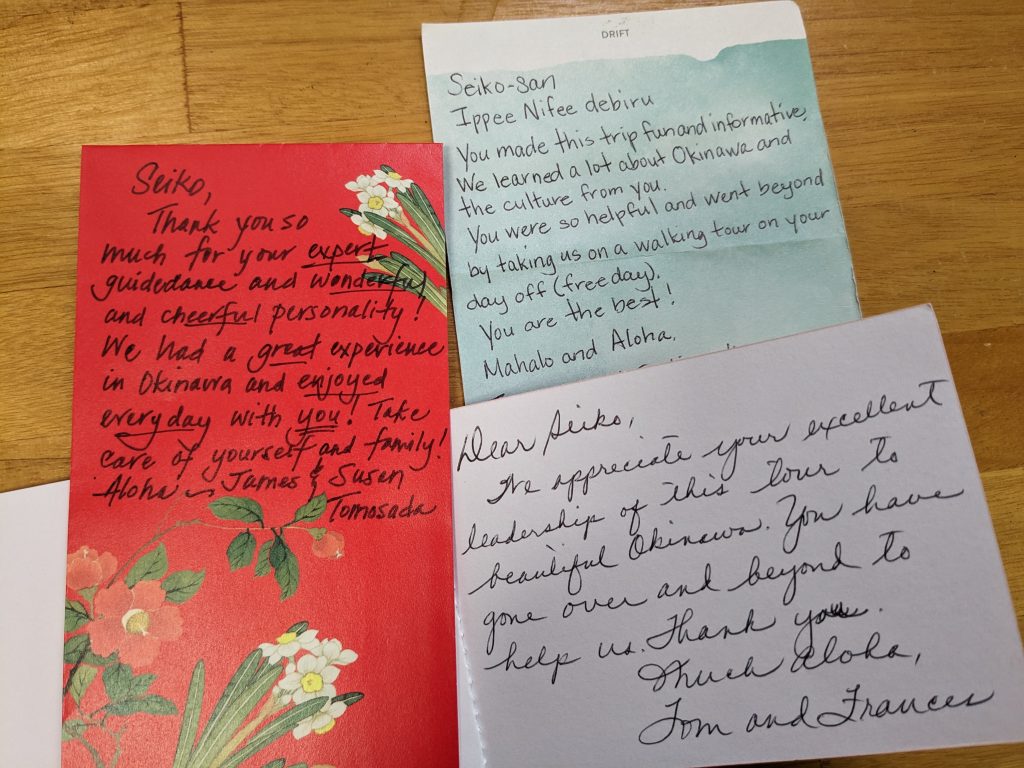 Seiko,
Thank you so
much for your expert
guidedance and wonderful
and cheerful personality!
We had a great experience
in Okinawa and enjoyed
everyday with you! Take
care of yourself and family!
Aloha ~ James & Susan
Tomosada
DRIFT
Seiko-san
Ippee Nifee debiru
You made this trip fun and informative.
We learned a lot about Okinawa and
the culture from you.
You were so helpful and went beyond
by taking us on a walking tour on your
day off (free day).
You are the best!
Mahalo and Aloha,
Dear Seiko,
We appreciate your excellent
leadership of this tour to
beautiful Okinawa. You have
gone over and beyond to
help us. Thank you.
Much Aloha,
Tom and Frances